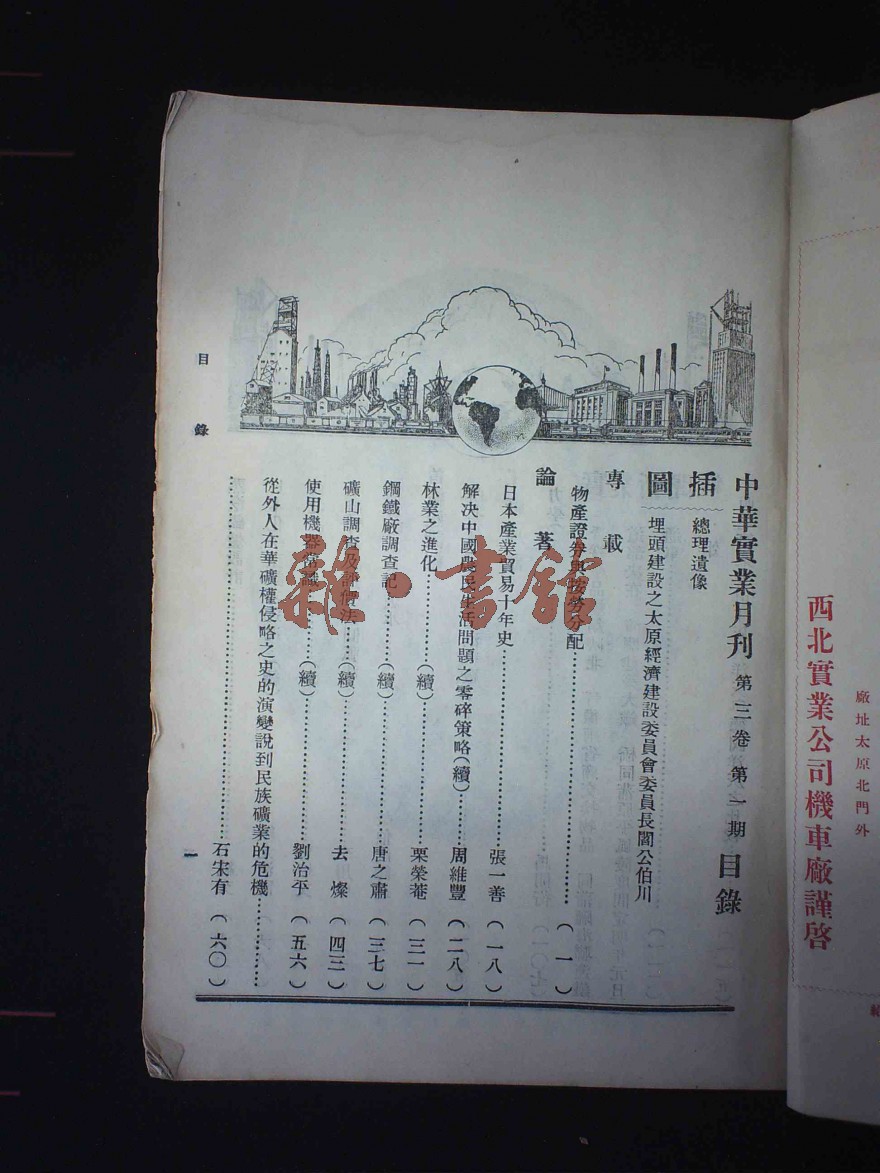 廠址太原北門外
西北實業公司機車廠謹啓
中華實業月刊 第三卷 第一期 目錄
插圖
總理遺像
埋頭建設之太原經濟建設委員會委員長閻公伯川
專載
物產證券與按勞分配……(一)
論著
日本產業貿易十年史……張一善(一八)
解決中國農民生活問題之零碎策略(續)……周維豐(二八)
林業之進化……(續)……栗榮菴(三一)
鋼鐵廠調查記……(續)……唐之肅(三七)
礦山調查及評價法……(續)……去 燦(四三)
使用機器常識……(續)……劉治平(五六)
從外人在華礦權侵略之史的演變說到民族礦業的危機……
……石宋有(六〇)
目錄
一
雜·書館